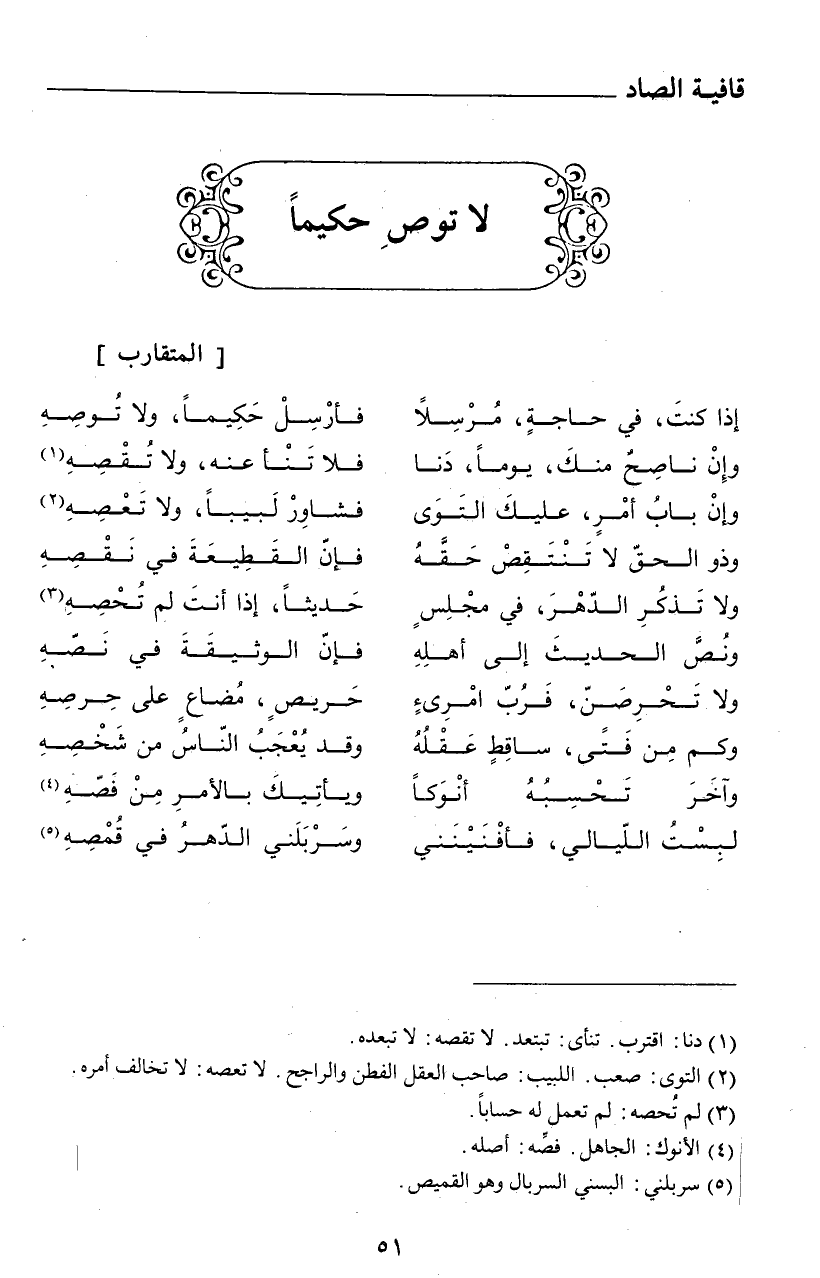 قافية الصاد
لا توصِ حكيماً
[ المتقارب ]
إذا كنتَ، في حاجةٍ، مُرْسِلاً فأرْسِلْ حَكِيماً، ولا تُوصِهِ
وإنْ ناصِحٌ منكَ، يوماً، دَنا فلا تَنْأَ عنه، ولا تُقْصِهِ(١)
وإنْ بابُ أمْرٍ، عليكَ التَوَى فشاوِرْ لَبِيباً، ولا تَعْصِهِ(٢)
وذو الحقّ لا تَنْتَقِصْ حَقَّهُ فإنّ القَطِيعَةَ في نَقْصِهِ
ولا تَذكُرِ الدّهْرَ، في مجْلِسٍ حَديثاً، إذا أنتَ لم تُحْصِهِ(٣)
ونُصَّ الحديثَ إلى أهلِهِ فإنّ الوثيقَةَ في نَصّهِ
ولا تَحْرِصَنّ، فَرُبّ امْرِىءٍ حَريصٍ، مُضاعٍ على حِرصِهِ
وكم مِن فَتًى، ساقِطٍ عَقْلُهُ وقد يُعْجَبُ النّاسُ من شَخْصِهِ
وآخَرَ تَحْسِبُهُ أنْوَكاً ويأتِيكَ بالأمرِ مِنْ فَصّهِ(٤)
لبِسْتُ اللّيالي، فأفْنَيْنَني وسَرْبَلَني الدّهرُ في قُمْصِهِ(٥)
(١) دنا: اقترب. تنأى: تبتعد. لا تقصه: لا تبعده.
(٢) التوى: صعب. اللبيب: صاحب العقل الفطن والراجح. لا تعصه: لا تخالف أمره.
(٣) لم تُحصه: لم تعمل له حساباً.
(٤) الأنوك: الجاهل. فصِّه: أصله.
(٥) سربلني: البسني السربال وهو القميص.
٥١